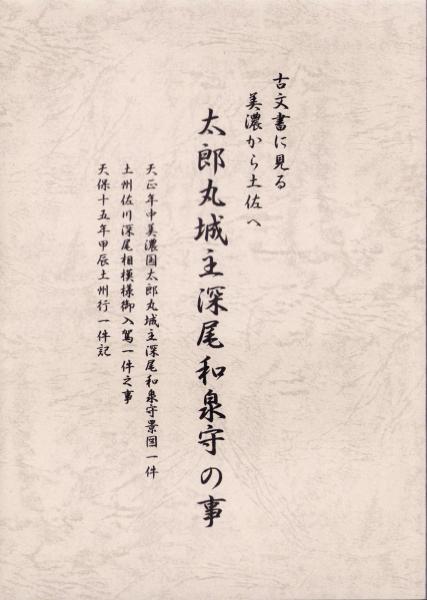 古文書に見る
美濃から土佐へ
太郎丸城主深尾和泉守の事
天正年中美濃国太郎丸城主深尾和泉守景図一件
土州佐川深尾相模様御入駕一件之事
天保十五年甲辰土州行一件記